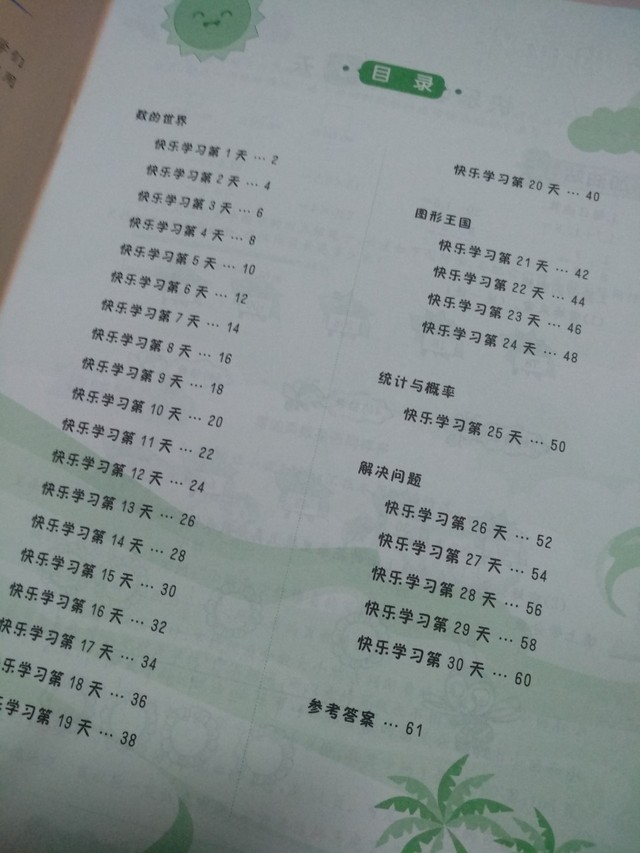 学们
目录
数的世界
快乐学习第 1 天 … 2
快乐学习第 2 天 … 4
快乐学习第 3 天 … 6
快乐学习第 4 天 … 8
快乐学习第 5 天 … 10
快乐学习第 6 天 … 12
快乐学习第 7 天 … 14
快乐学习第 8 天 … 16
快乐学习第 9 天 … 18
快乐学习第 10 天 … 20
快乐学习第 11 天 … 22
快乐学习第 12 天 … 24
快乐学习第 13 天 … 26
快乐学习第 14 天 … 28
快乐学习第 15 天 … 30
快乐学习第 16 天 … 32
快乐学习第 17 天 … 34
乐学习第 18 天 … 36
学习第 19 天 … 38
快乐学习第 20 天 … 40
图形王国
快乐学习第 21 天 … 42
快乐学习第 22 天 … 44
快乐学习第 23 天 … 46
快乐学习第 24 天 … 48
统计与概率
快乐学习第 25 天 … 50
解决问题
快乐学习第 26 天 … 52
快乐学习第 27 天 … 54
快乐学习第 28 天 … 56
快乐学习第 29 天 … 58
快乐学习第 30 天 … 60
参考答案 … 61